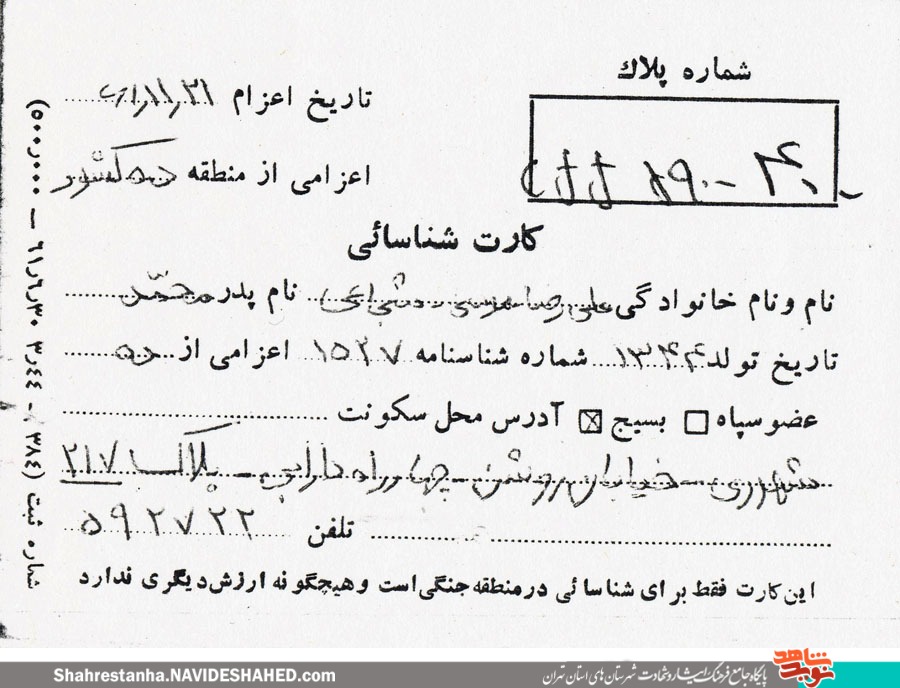 شماره پلاك
تاریخ اعزام
اعزامی از منطقه ده کشور
کارت شناسائی
نام ونام خانوادگی علیرضا موسی نام پدر محمد
تاریخ تولد ۱۳۴۴ شماره شناسنامه ۱۵۲۷ اعزامی از ده
عضو سپاه □ بسیج ☒ آدرس محل سکونت
شهرری - خیابان روشن - چهارراه دارابی - پلاک ۲۱۷
تلفن ۵۹۲۷۲۲
این کارت فقط برای شناسائی در منطقه جنگی است و هیچگونه ارزش دیگری ندارد
شماره ثبت
Shahrestanha.NAVIDESHAHED.com
پایگاه جامع فرهنگ ایثار و شهادت شهرستان های استان تهران
نوید شاهد